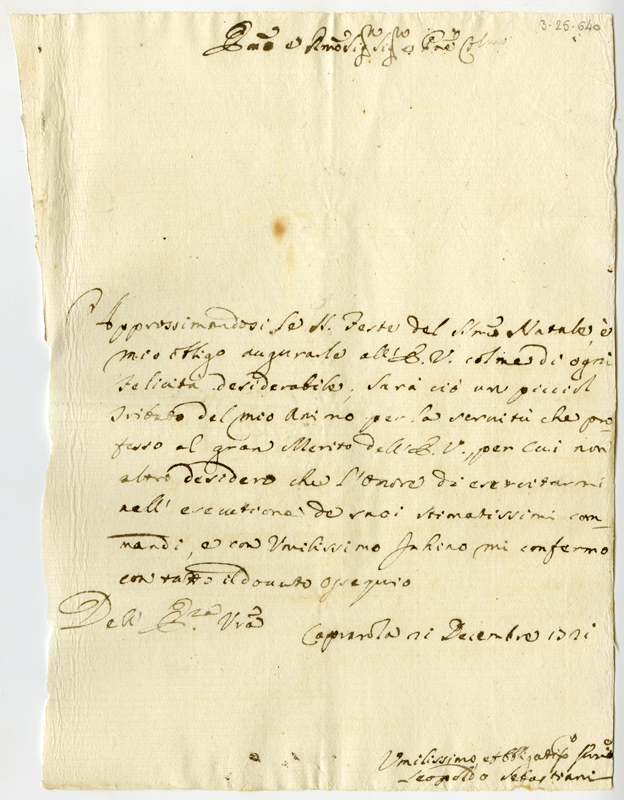 3-25-640
Emo e Rmo Sig.re Sig.re e Pne Colmo
Approssimandosi le S. Feste del SSmo Natale è
mio obligo augurarle all'E. V. colme di ogni
Felicità desiderabile, sarà ciò un picciol
tributo del mio Animo per la servitù che pro-
fesso al gran Merito dell'E. V., per cui non
altro desidero che l'Onore di esercitarmi
nell'esecutione de suoi stimatissimi com-
mandi, e con Vmilissimo Inhino mi confermo
con tutto il dovuto ossequio
Dell' Eza Vra
Caprarola 21 Decembre 1721
Vmilissimo, et Obligatiss.o
Leopoldo Sebastiani